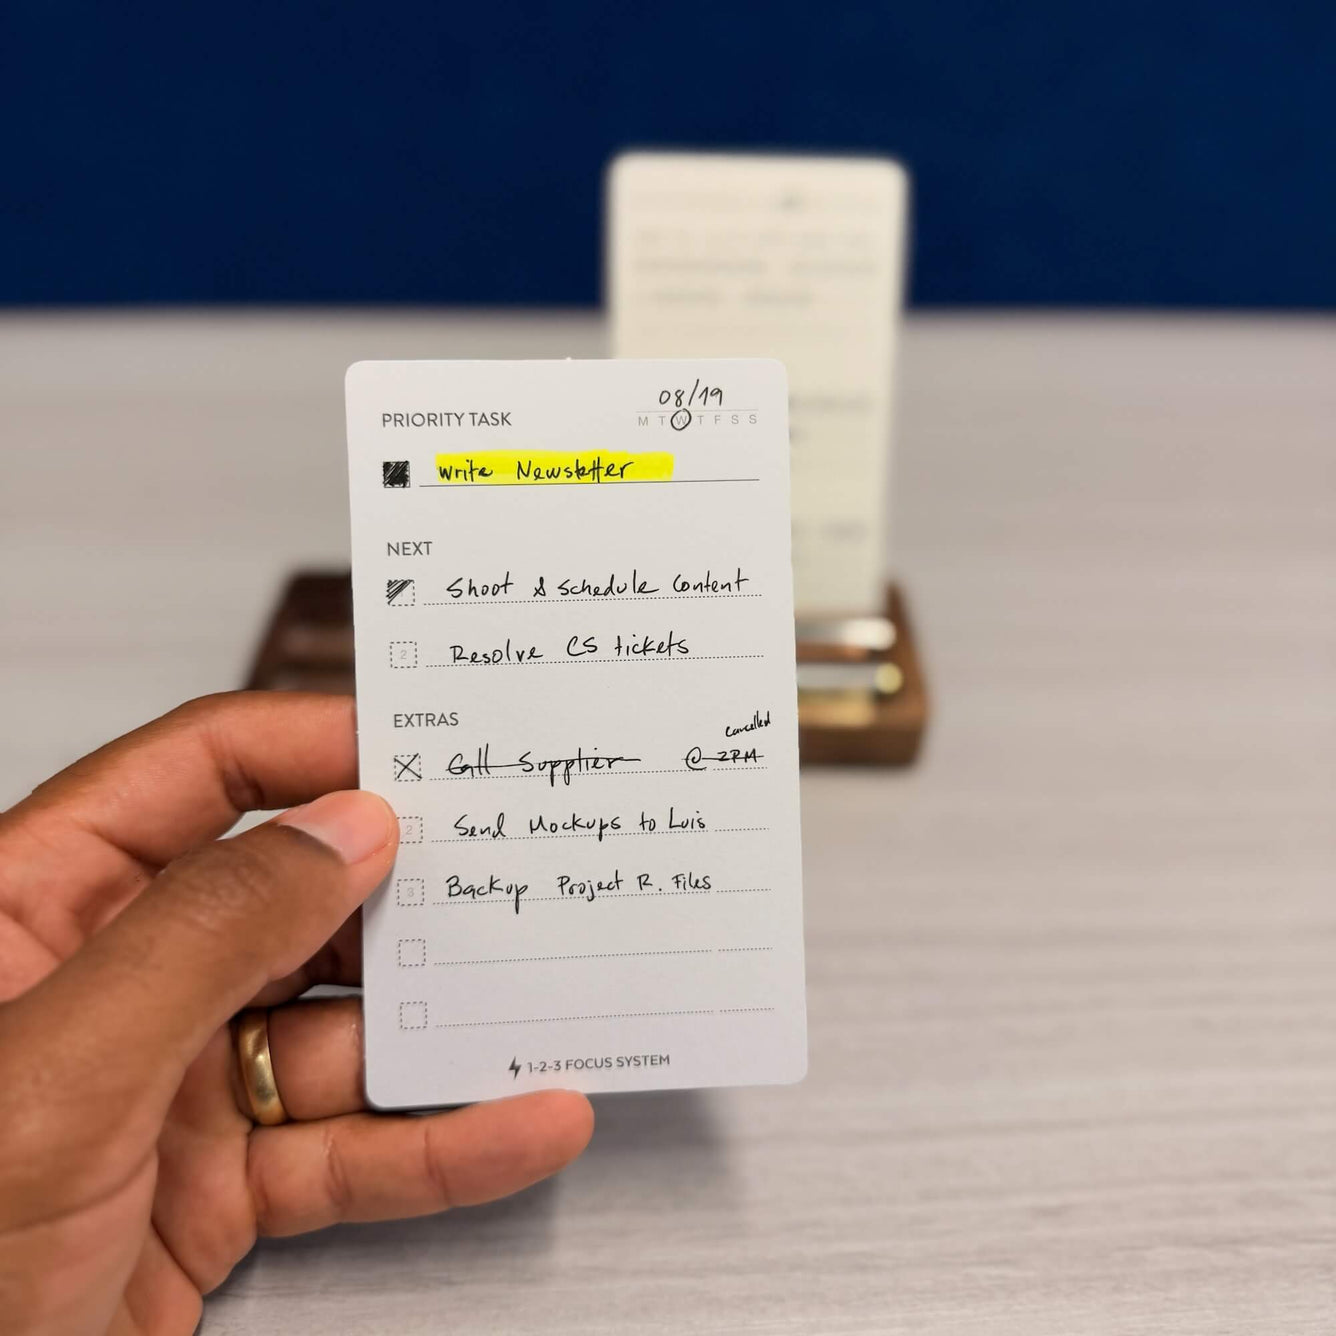 08/19
PRIORITY TASK M T W T F S S
Write Newsletter
NEXT
Shoot & Schedule Content
2 Resolve CS tickets
EXTRAS
cancelled
Call Supplier @ 2PM
2 Send Mockups to Luis
3 Backup Project R. Files
1-2-3 FOCUS SYSTEM